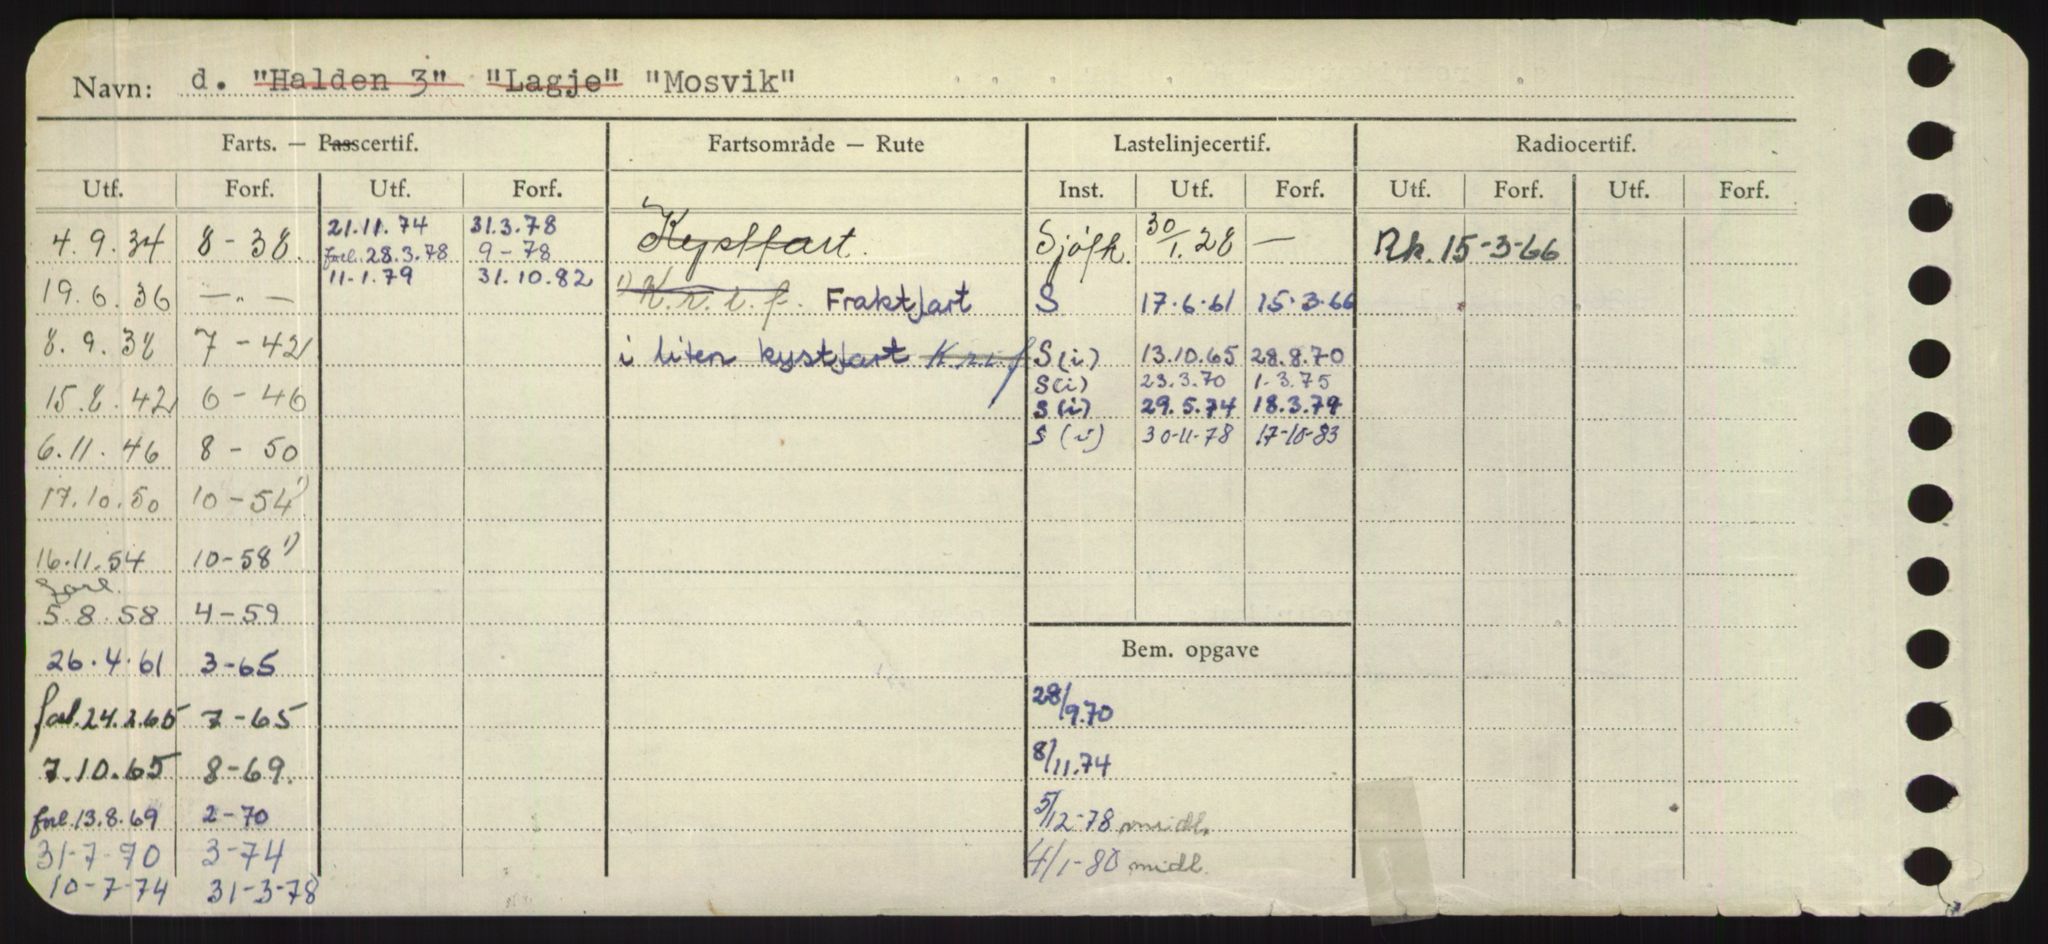 Navn: d. "Halden 3" "Lagje" "Mosvik"
Farts. — Passcertif. Fartsområde — Rute Lastelinjecertif. Radiocertif.
Utf. Forf. Utf. Forf. Inst. Utf. Forf. Utf. Forf. Utf. Forf.
4.9.34 8-38. 21.11.74 31.3.78 Kystfart. Sjøfk. 30/1.28 — Rk. 15-3-66
forl. 28.3.78 9-78
11-1.79 31.10.82
19.6.36 —„— 1) K.r.i.f. Fraktfart S 17.6.61 15.3.66
8.9.38 7-42 i liten kystfart K.r.i.f S(i) 13.10.65 28.8.70
S(i) 23.3.70 1-3.75
15.8.42 6-46 S(i) 29.5.74 18.3.79
6.11.46 8-50 S(i) 30-11-78 17-10-83
17.10.50 10-54 1)
16.11.54 10-58 1)
forl.
5.8.58 4-59
Bem. opgave
26.4.61 3-65
forl. 24.2.65 7-65 28/9.70
7.10.65 8-69. 8/11.74
forl. 13.8.69 2-70 5/12-78 midl.
31-7-70 3-74 4/1-80 midl.
10-7-74 31-3-78